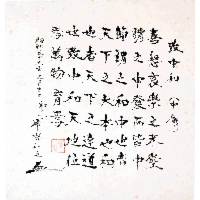 致中和
喜怒哀樂之未發
謂之中發而皆中
節謂之和中也者
天下之大本也和
也者天下之達道
也致中和天地位
焉萬物育焉